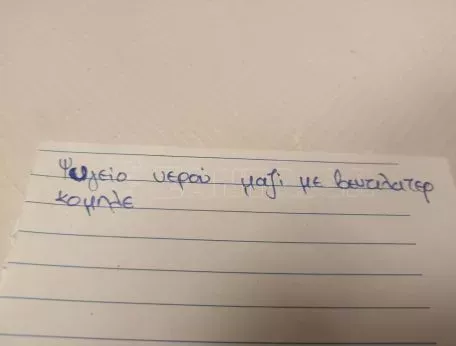 Ψυγείο νερού μαζί με βεντιλατερ
κομπλε